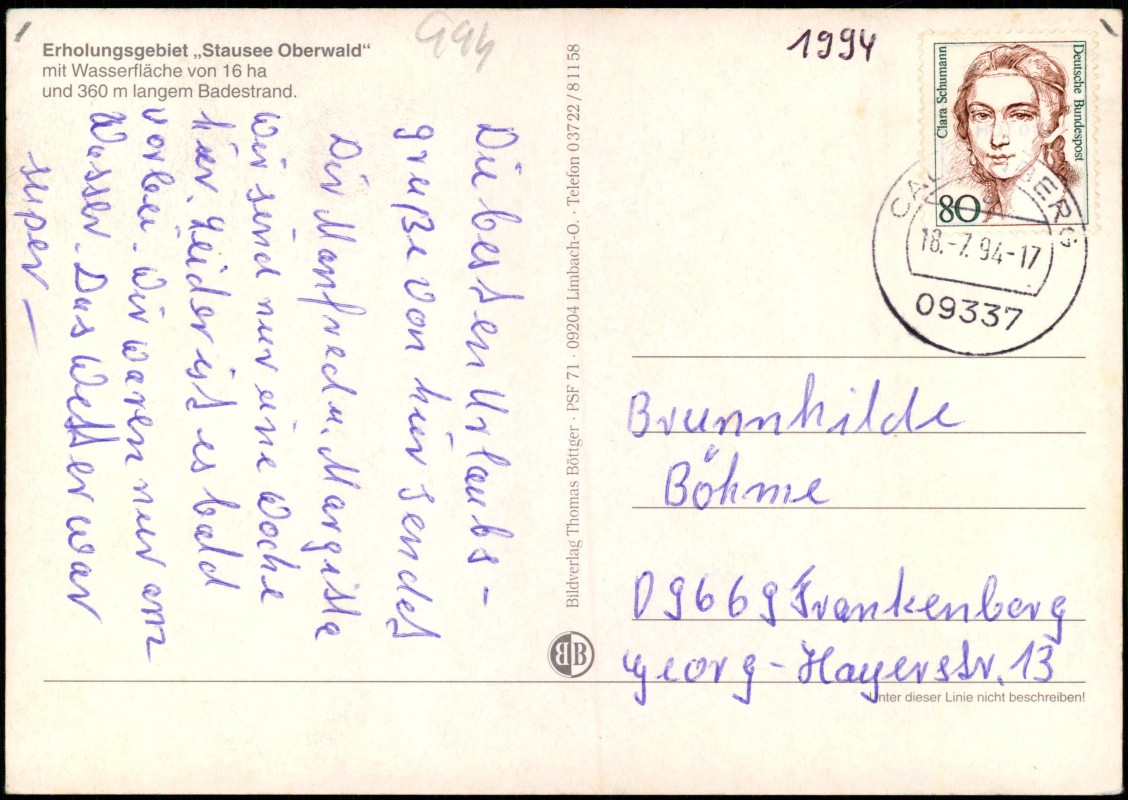 Erholungsgebiet „Stausee Oberwald“
mit Wasserfläche von 16 ha
und 360 m langem Badestrand.
1994
Clara Schumann
Deutsche Bundespost
80
18.-7.94-17
09337
Die besten Urlaubs-
grüße von hier sendet
Dir Manfred u. Margitta
Wir sind nur eine Woche
hier. Leider ist es bald
vorbei. Wir waren nur am
Wasser. Das Wetter war
super –
Bildverlag Thomas Böttger · PSF 71 · 09204 Limbach-O. · Telefon 03722/81158
Brunnhilde
Böhme
09669 Frankenberg
Georg-Hayerstr. 13
Unter dieser Linie nicht beschreiben!